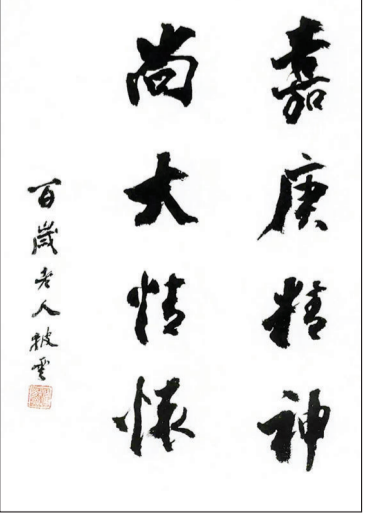 嘉庚精神
尚大情怀
百岁老人披云